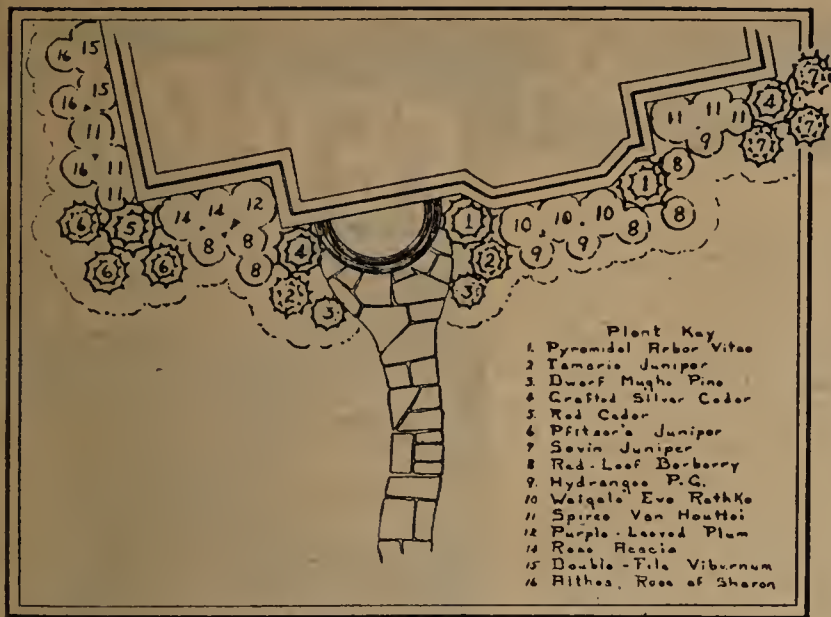 16 15 7
16 15 11 11 11 4
11 9 7 7
16 11 8
11 1
6 5 14 14 12 1 10 10 10 8
8 8 4 9 9 8
6 6 8 2
2 3 3
Plant Key
1. Pyramidal Arbor Vitae
2 Tamarix Juniper
3. Dwarf Mugho Pine
4 Grafted Silver Cedar
5. Red Cedar
6 Pfitzer's Juniper
7 Savin Juniper
8 Red-Leaf Barberry
9. Hydrangea P.G.
10 Weigela Eva Rathke
11 Spirea Van Houttei
12 Purple-Leaved Plum
14 Rose Acacia
15 Double-File Viburnum
16 Althea, Rose of Sharon